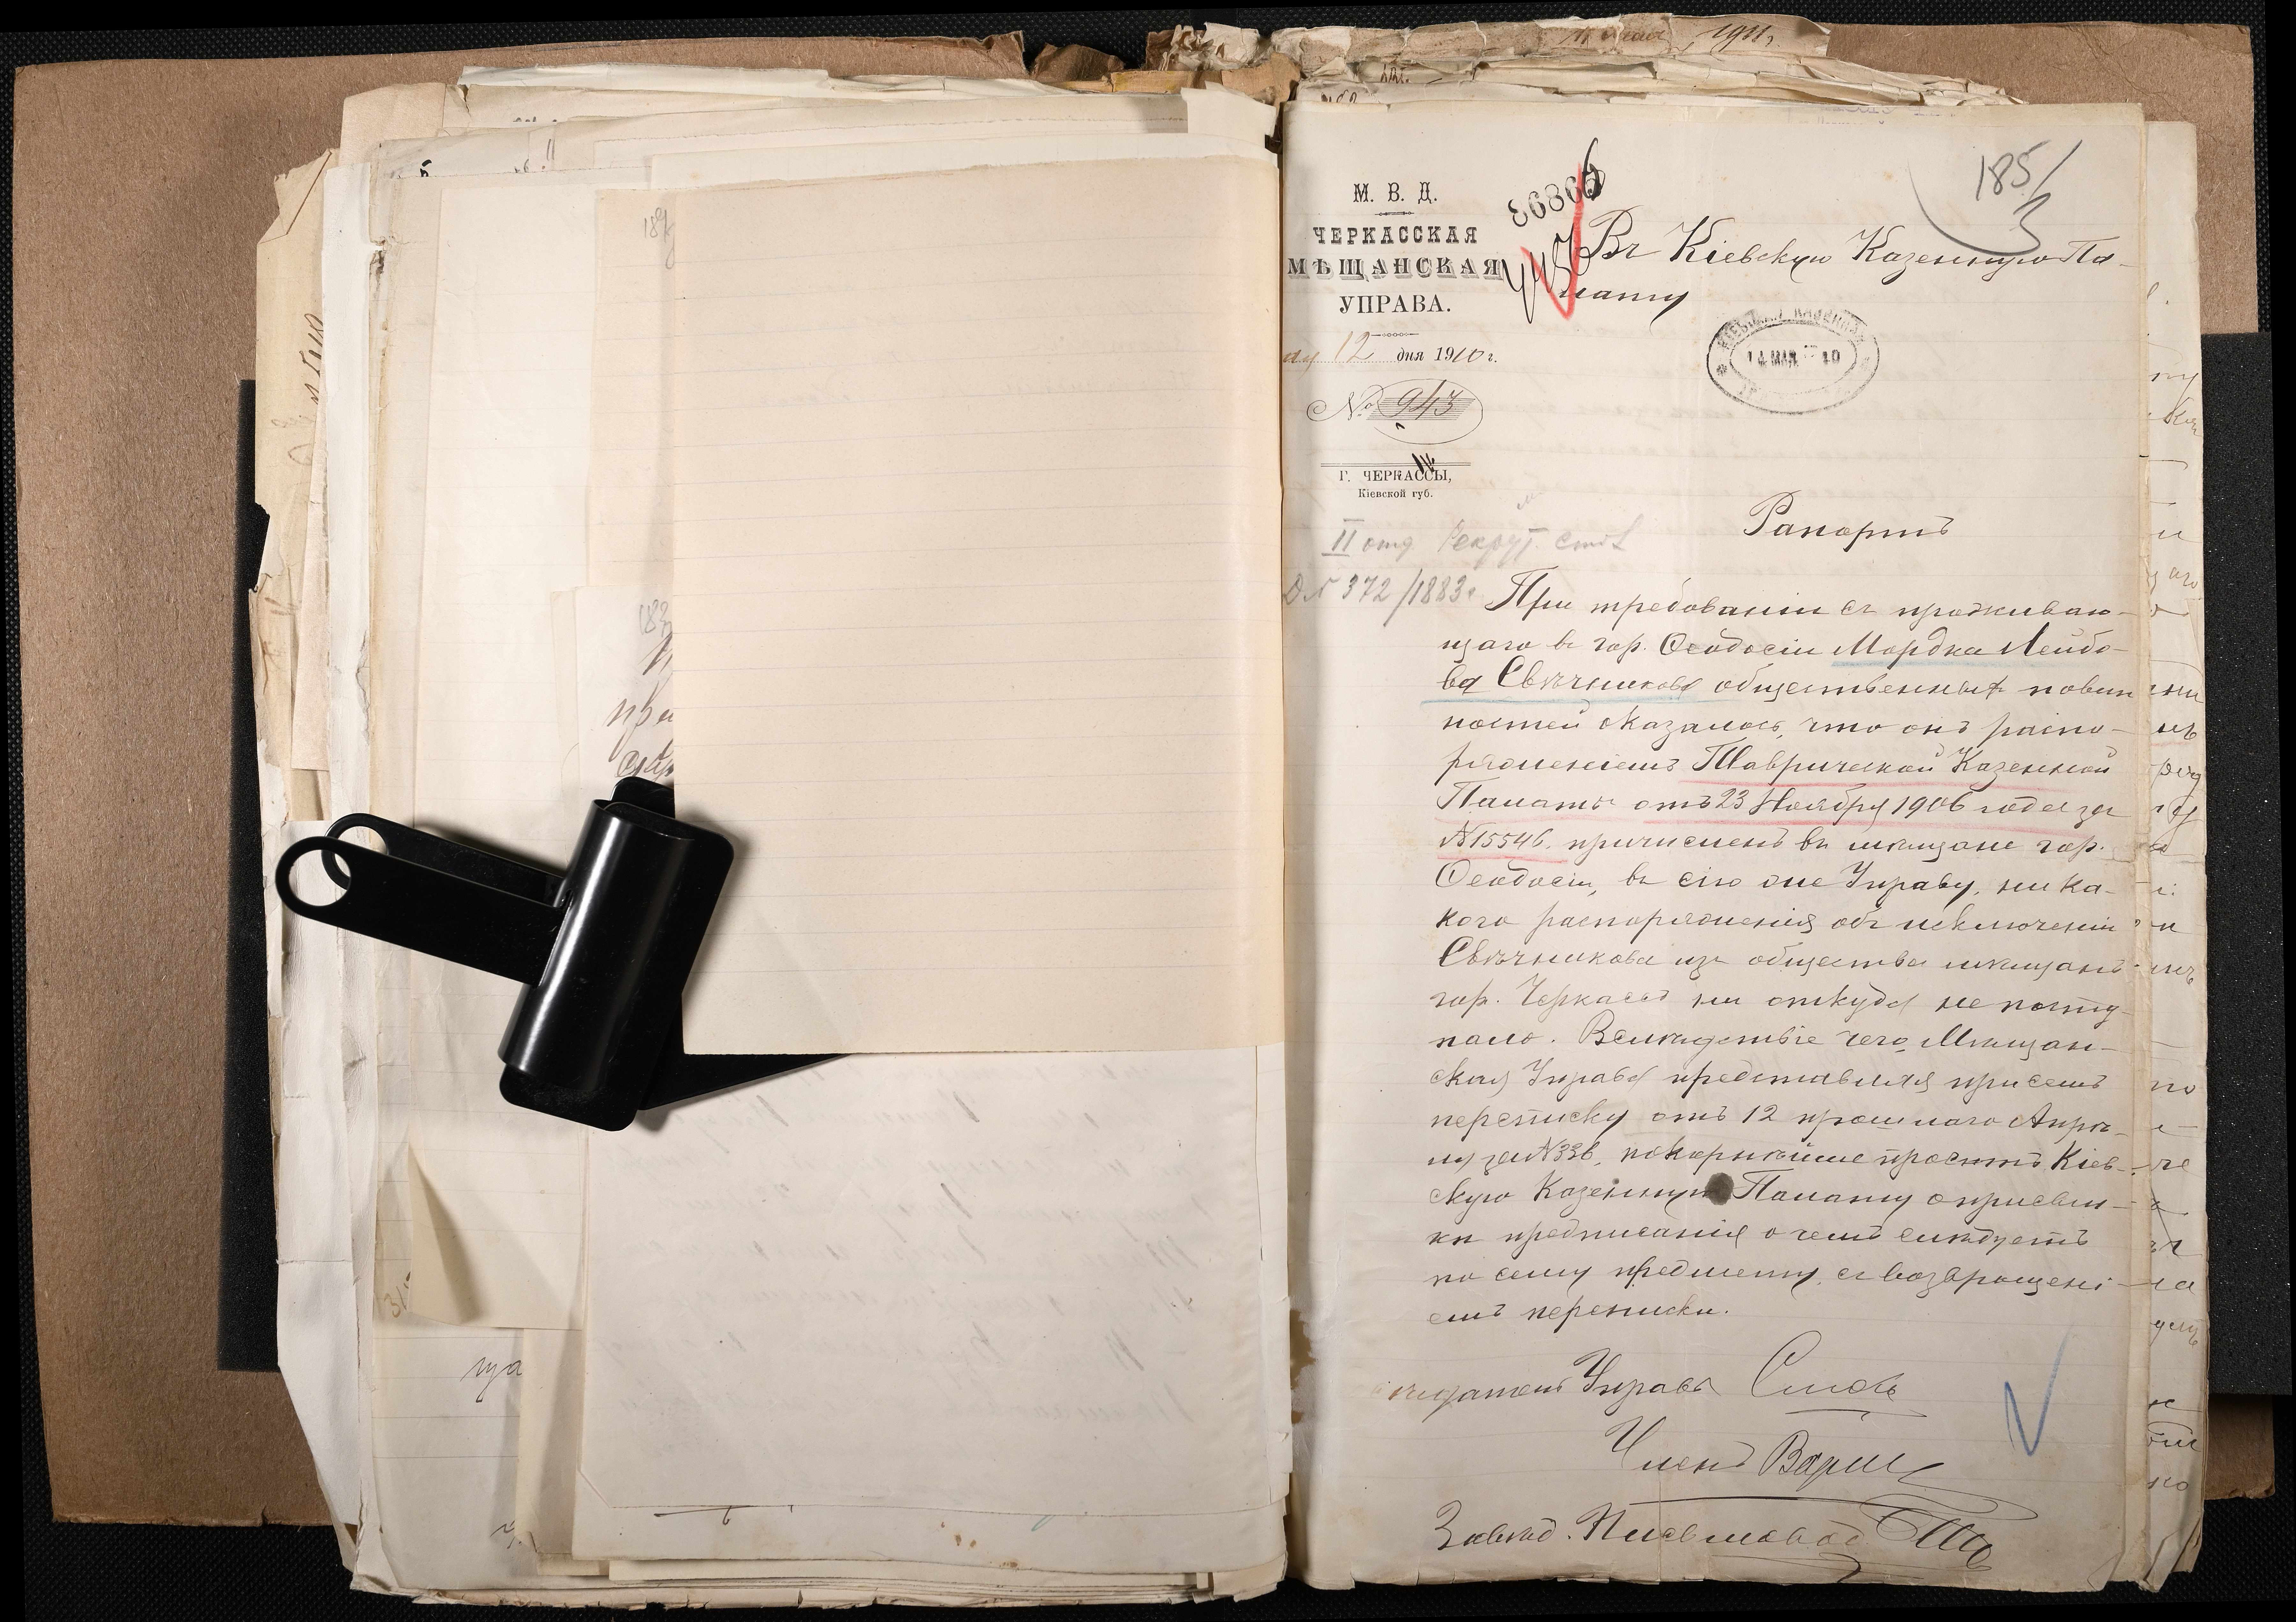 1911 г.
185
3
36806
М. В. Д.
ЧЕРКАССКАЯ
МѢЩАНСКАЯ
УПРАВА.
12 дня 1910 г.
№ 943
Г. ЧЕРКАССЫ,
Кіевской губ.
Въ Кіевскую Казенную Па-
лату
14 МАЯ 10
II отд Рекрут. стол
Д № 372/1883 г
Рапортъ
При требованіи съ проживаю-
щаго въ гор. Ѳеодосіи Мордка Лейбо-
ва Свѣчникова общественныхъ повин
ностей оказалось, что онъ распо-
ряженіемъ Таврической Казенной
Палаты отъ 23 Ноября 1906 года за
№ 15546. причисленъ въ мѣщане гор.
Ѳеодосіи, въ сію же Управу, ника-
кого распоряженія объ исключеніи
Свѣчникова изъ общества мѣщанъ
гор. Черкассъ ни откуда не посту-
пало. Вслѣдствіе чего, Мѣщан-
ская Управа представляя при семъ
переписку отъ 12 прошлаго Апрѣ-
ля за № 336, покорнѣйше проситъ Кіев-
скую Казенную Палату о присыл-
кѣ предписанія о чемъ слѣдуетъ
по сему предмету, съ возвращені-
емъ переписки.
Управы
Членъ
Завѣд. Письмовод